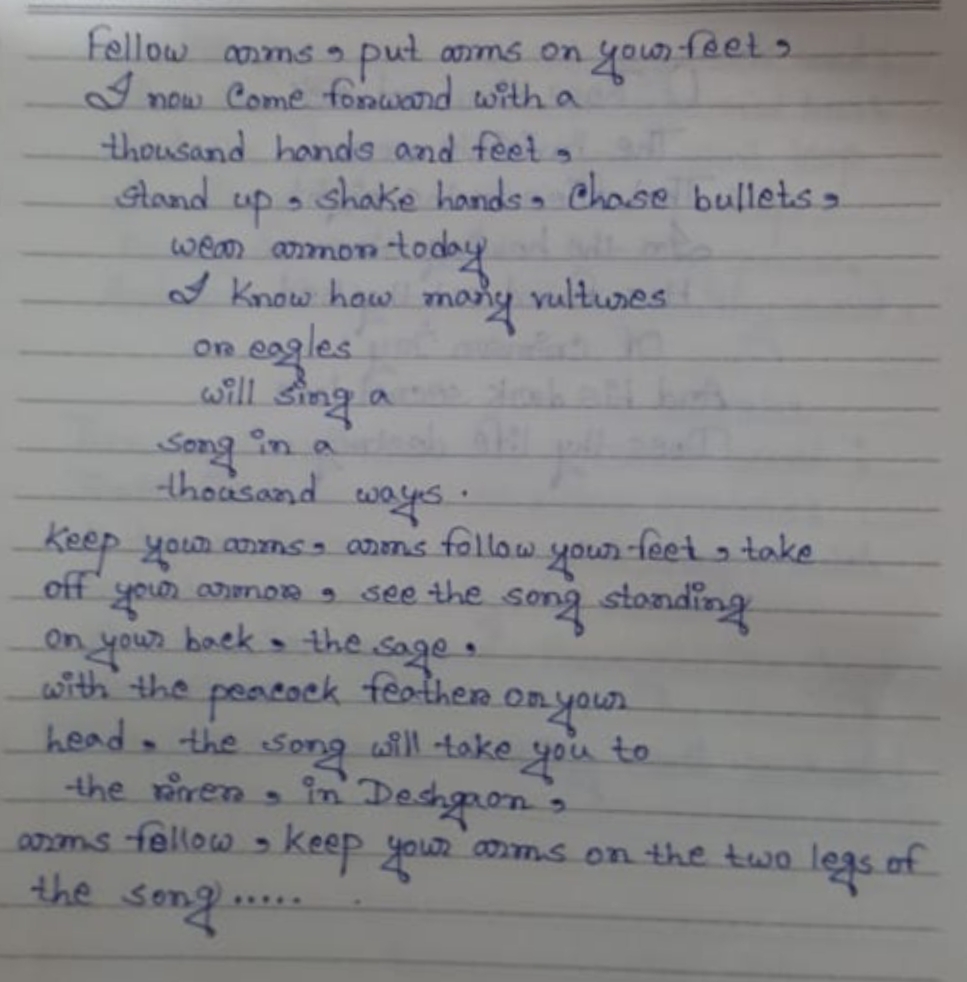 Fellow arms, put arms on your feet,
I now Come forward with a
thousand hands and feet,
Stand up, shake hands, Chase bullets,
wear armor today
I know how many vultures
or eagles
will sing a
song in a
thousand ways.
Keep your arms, arms follow your feet, take
off your armor, see the song standing
on your back, the sage,
with the peacock feather on your
head, the song will take you to
the river, in Deshgaon,
arms fellow, keep your arms on the two legs of
the song.....